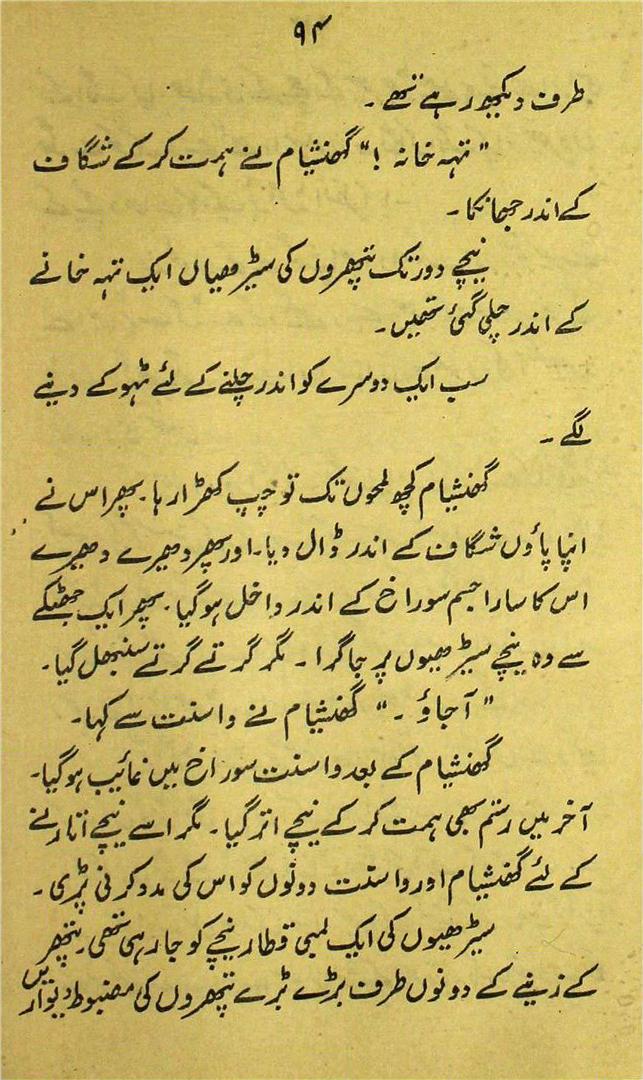 ۹۴
طرف دیکھ رہے تھے۔
"تہہ خانہ !" گھنشیام نے ہمت کر کے شگاف
کے اندر جھانکا۔
نیچے دور تک پتھروں کی سیڑھیاں ایک تہہ خانے
کے اندر چلی گئی تھیں۔
سب ایک دوسرے کو اندر چلنے کے لئے ٹہوکے دینے
لگے۔
گھنشیام کچھ لمحوں تک تو چپ کھڑا رہا۔ پھر اس نے
اپنا پاؤں شگاف کے اندر ڈال دیا۔ اور پھر دھیرے دھیرے
اس کا سارا جسم سوراخ کے اندر داخل ہو گیا۔ پھر ایک جھٹکے
سے وہ نیچے سیڑھیوں پر جا گرا۔ مگر گرتے گرتے سنبھل گیا۔
"آجاؤ۔" گھنشیام نے واسنت سے کہا۔
گھنشیام کے بعد واسنت سوراخ میں غائیب ہو گیا۔
آخر میں رستم بھی ہمت کر کے نیچے اتر گیا۔ مگر اسے نیچے اتارنے
کے لئے گھنشیام اور واسنت دونوں کو اس کی مدد کرنی پڑی۔
سیڑھیوں کی ایک لمبی قطار نیچے کو جا رہی تھی۔ پتھر
کے زینے کے دونوں طرف بڑے بڑے پتھروں کی مضبوط دیواریں